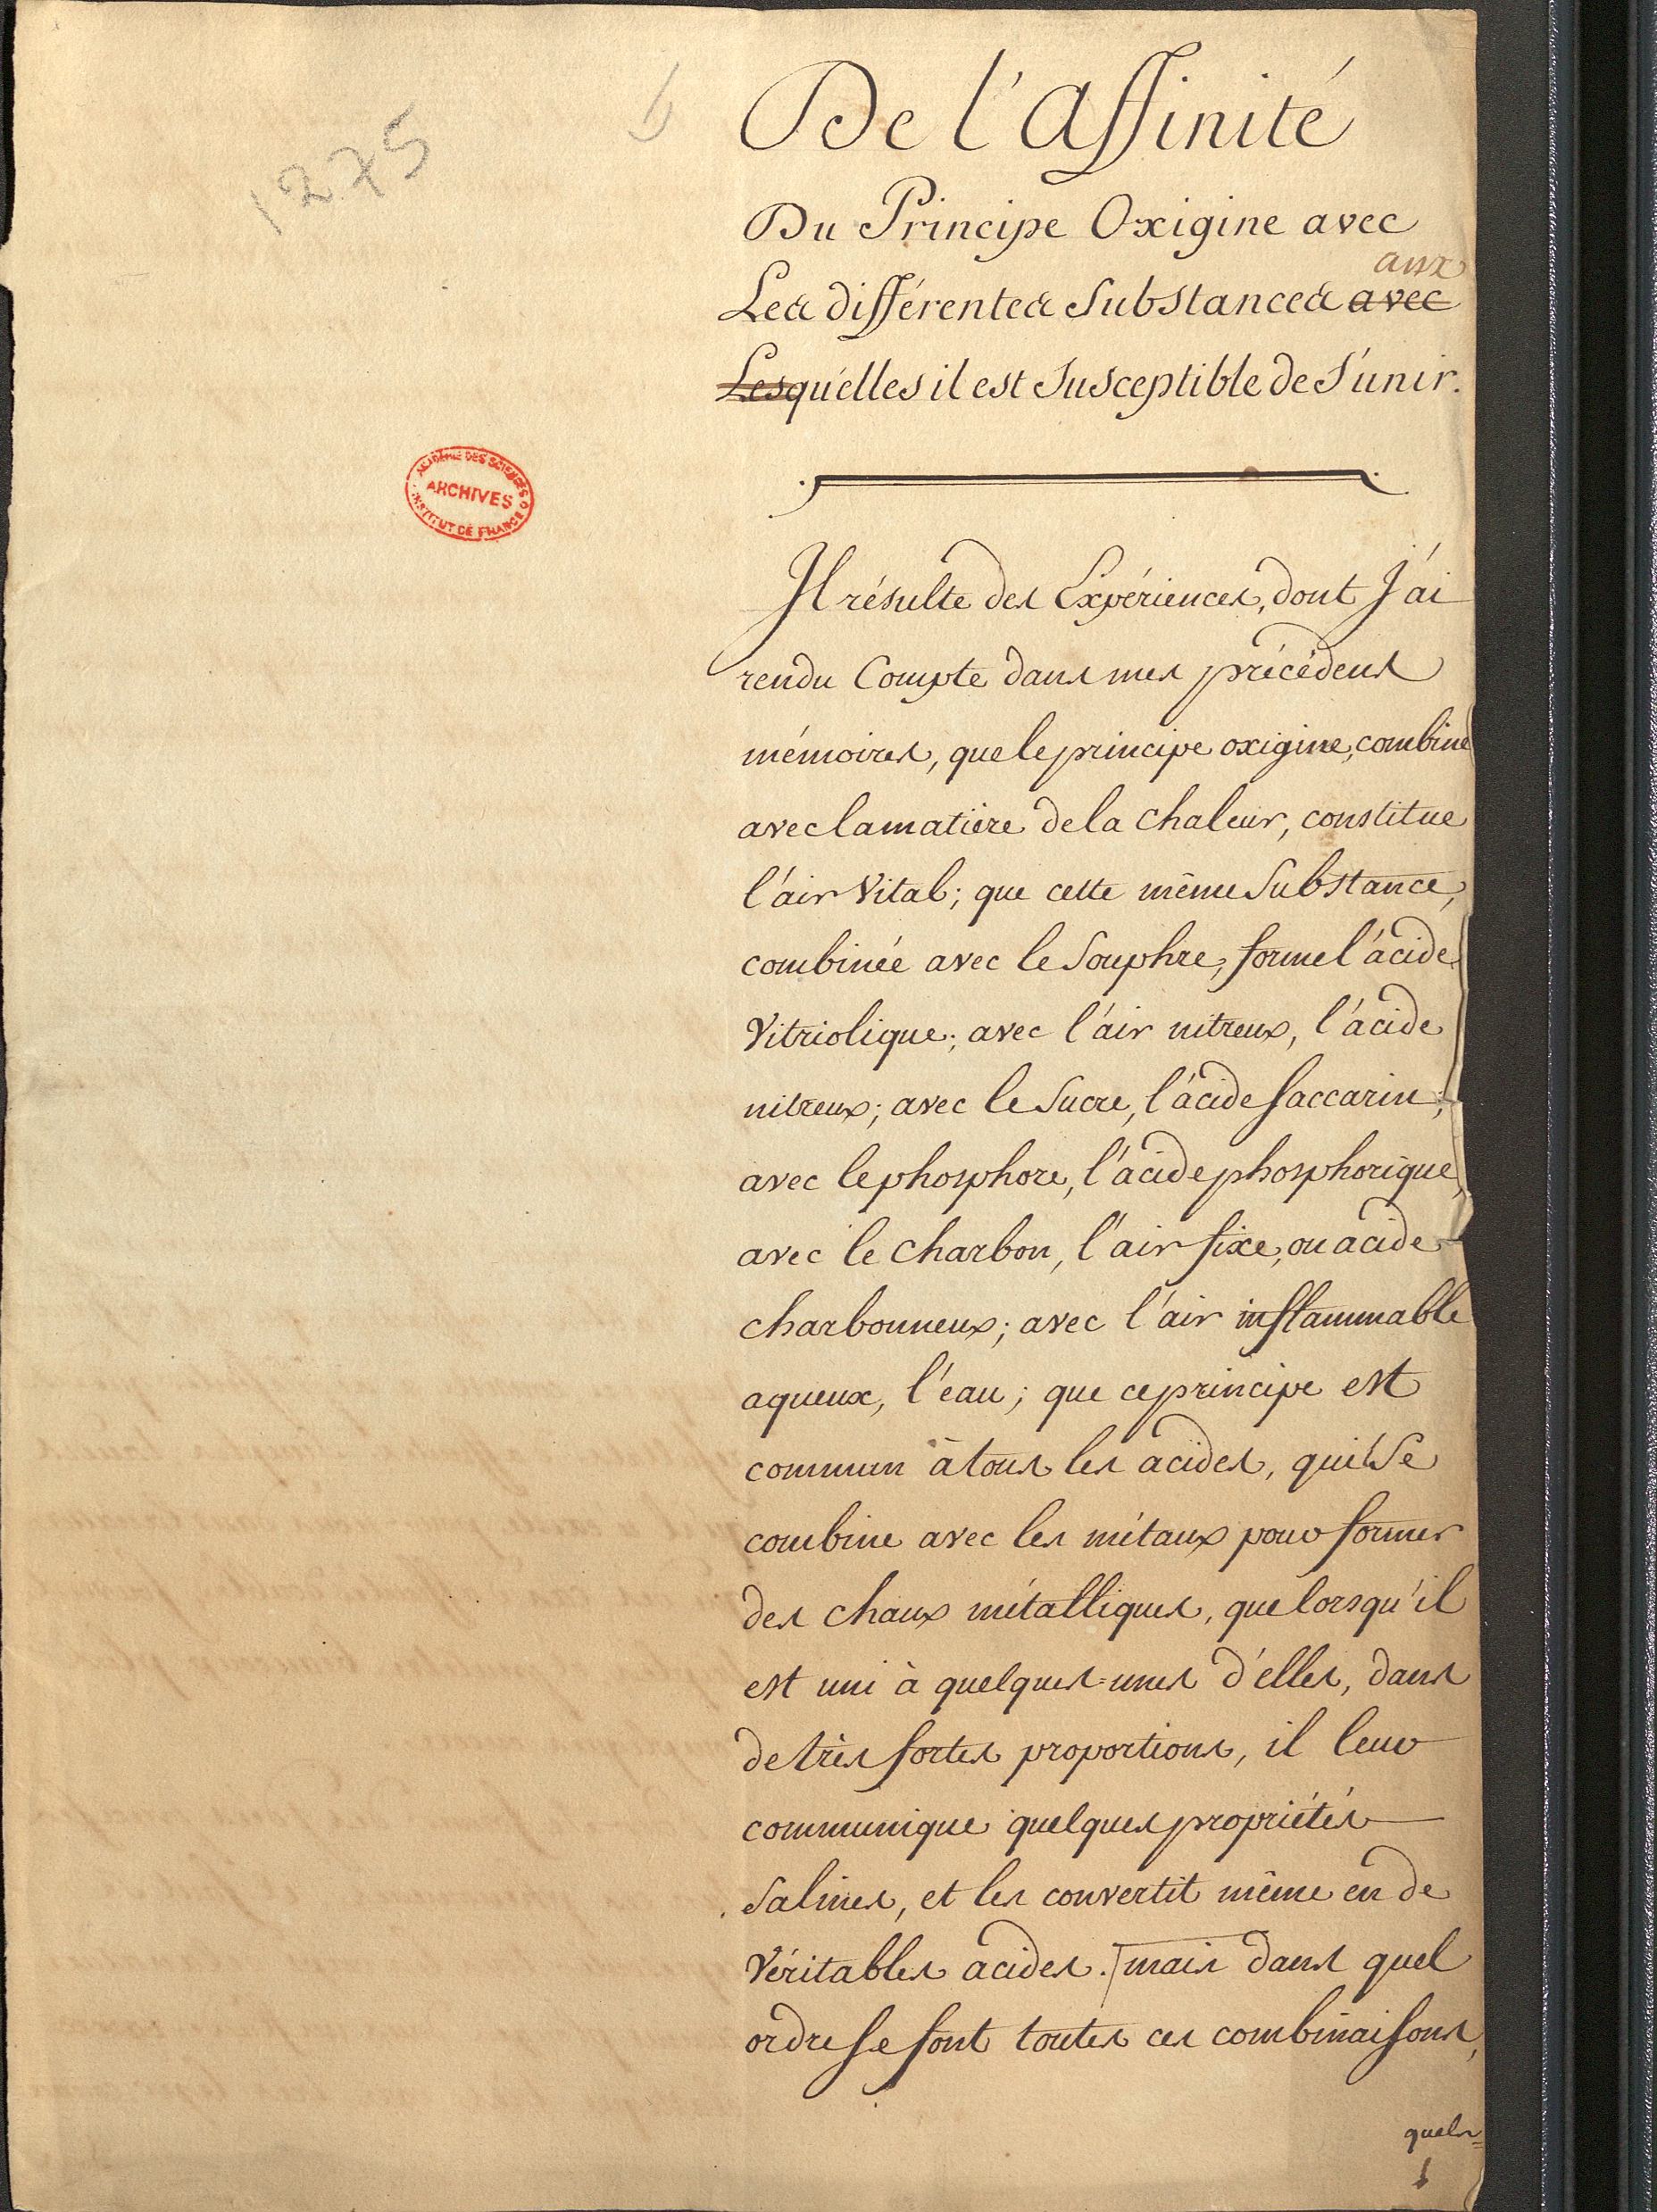 1275
De l'Affinité
Du Principe Oxigine avec
Les différentes Substances avec
aux
Lesquelles il est Susceptible de S'unir.
ACADÉMIE DES SCIENCES
ARCHIVES
INSTITUT DE FRANCE
Il résulte des Expériences, dont J'ai
rendu Compte dans mes précédens
mémoires, que le principe oxigine, combiné
avec la matière de la chaleur, constitue
l'air Vital; que cette même Substance,
combinée avec le Souphre, forme l'acide
Vitriolique; avec l'air nitreux, l'acide
nitreux; avec le Sucre, l'acide Saccarin;
avec le phosphore, l'acide phosphorique,
avec le charbon, l'air fixe, ou acide
charbonneux; avec l'air inflammable
aqueux, l'eau; que ce principe est
commun à tous les acides, qu'il Se
combine avec les métaux pour former
des chaux métalliques, que lorsqu'il
est uni à quelques-unes d'elles, dans
de très fortes proportions, il leur
communique quelques propriétés
Salines, et les convertit même en de
Véritables acides. mais dans quel
ordre se font toutes ces combinaisons,
quels